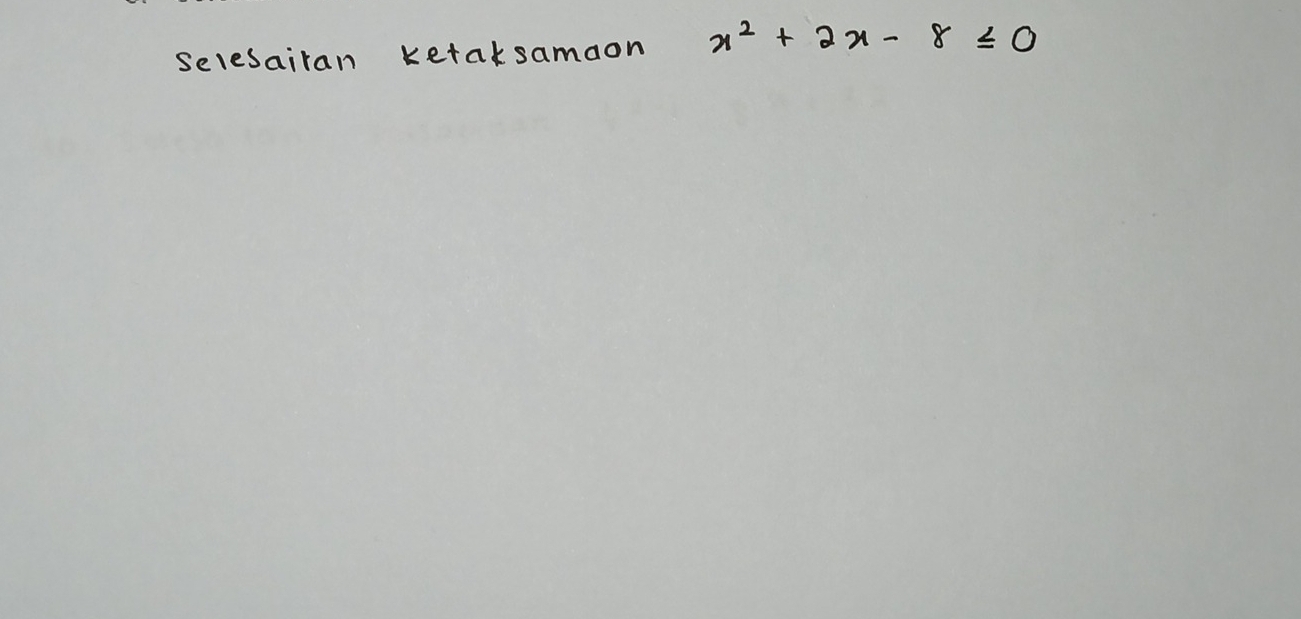 Selesaikan ketaksamaan x² + 2x - 8 ≤ 0